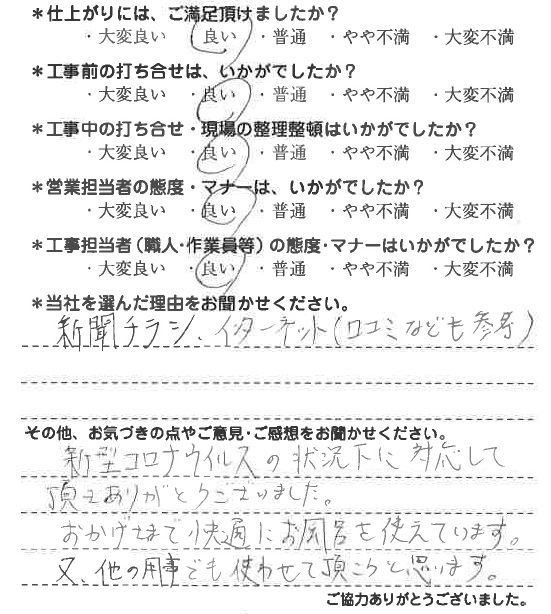 ＊仕上がりには、ご満足頂けましたか？
・大変良い ・良い ・普通 ・やや不満 ・大変不満
＊工事前の打ち合せは、いかがでしたか？
・大変良い ・良い ・普通 ・やや不満 ・大変不満
＊工事中の打ち合せ・現場の整理整頓はいかがでしたか？
・大変良い ・良い ・普通 ・やや不満 ・大変不満
＊営業担当者の態度・マナーは、いかがでしたか？
・大変良い ・良い ・普通 ・やや不満 ・大変不満
＊工事担当者（職人・作業員等）の態度・マナーはいかがでしたか？
・大変良い ・良い ・普通 ・やや不満 ・大変不満
＊当社を選んだ理由をお聞かせください。
新聞チラシ、インターネット（口コミなども参考）
その他、お気づきの点やご意見・ご感想をお聞かせください。
新型コロナウイルスの状況下に対応して
頂きありがとうございました。
おかげさまで快適にお風呂を使えています。
又、他の用事でも使わせて頂こうと思います。
ご協力ありがとうございました。